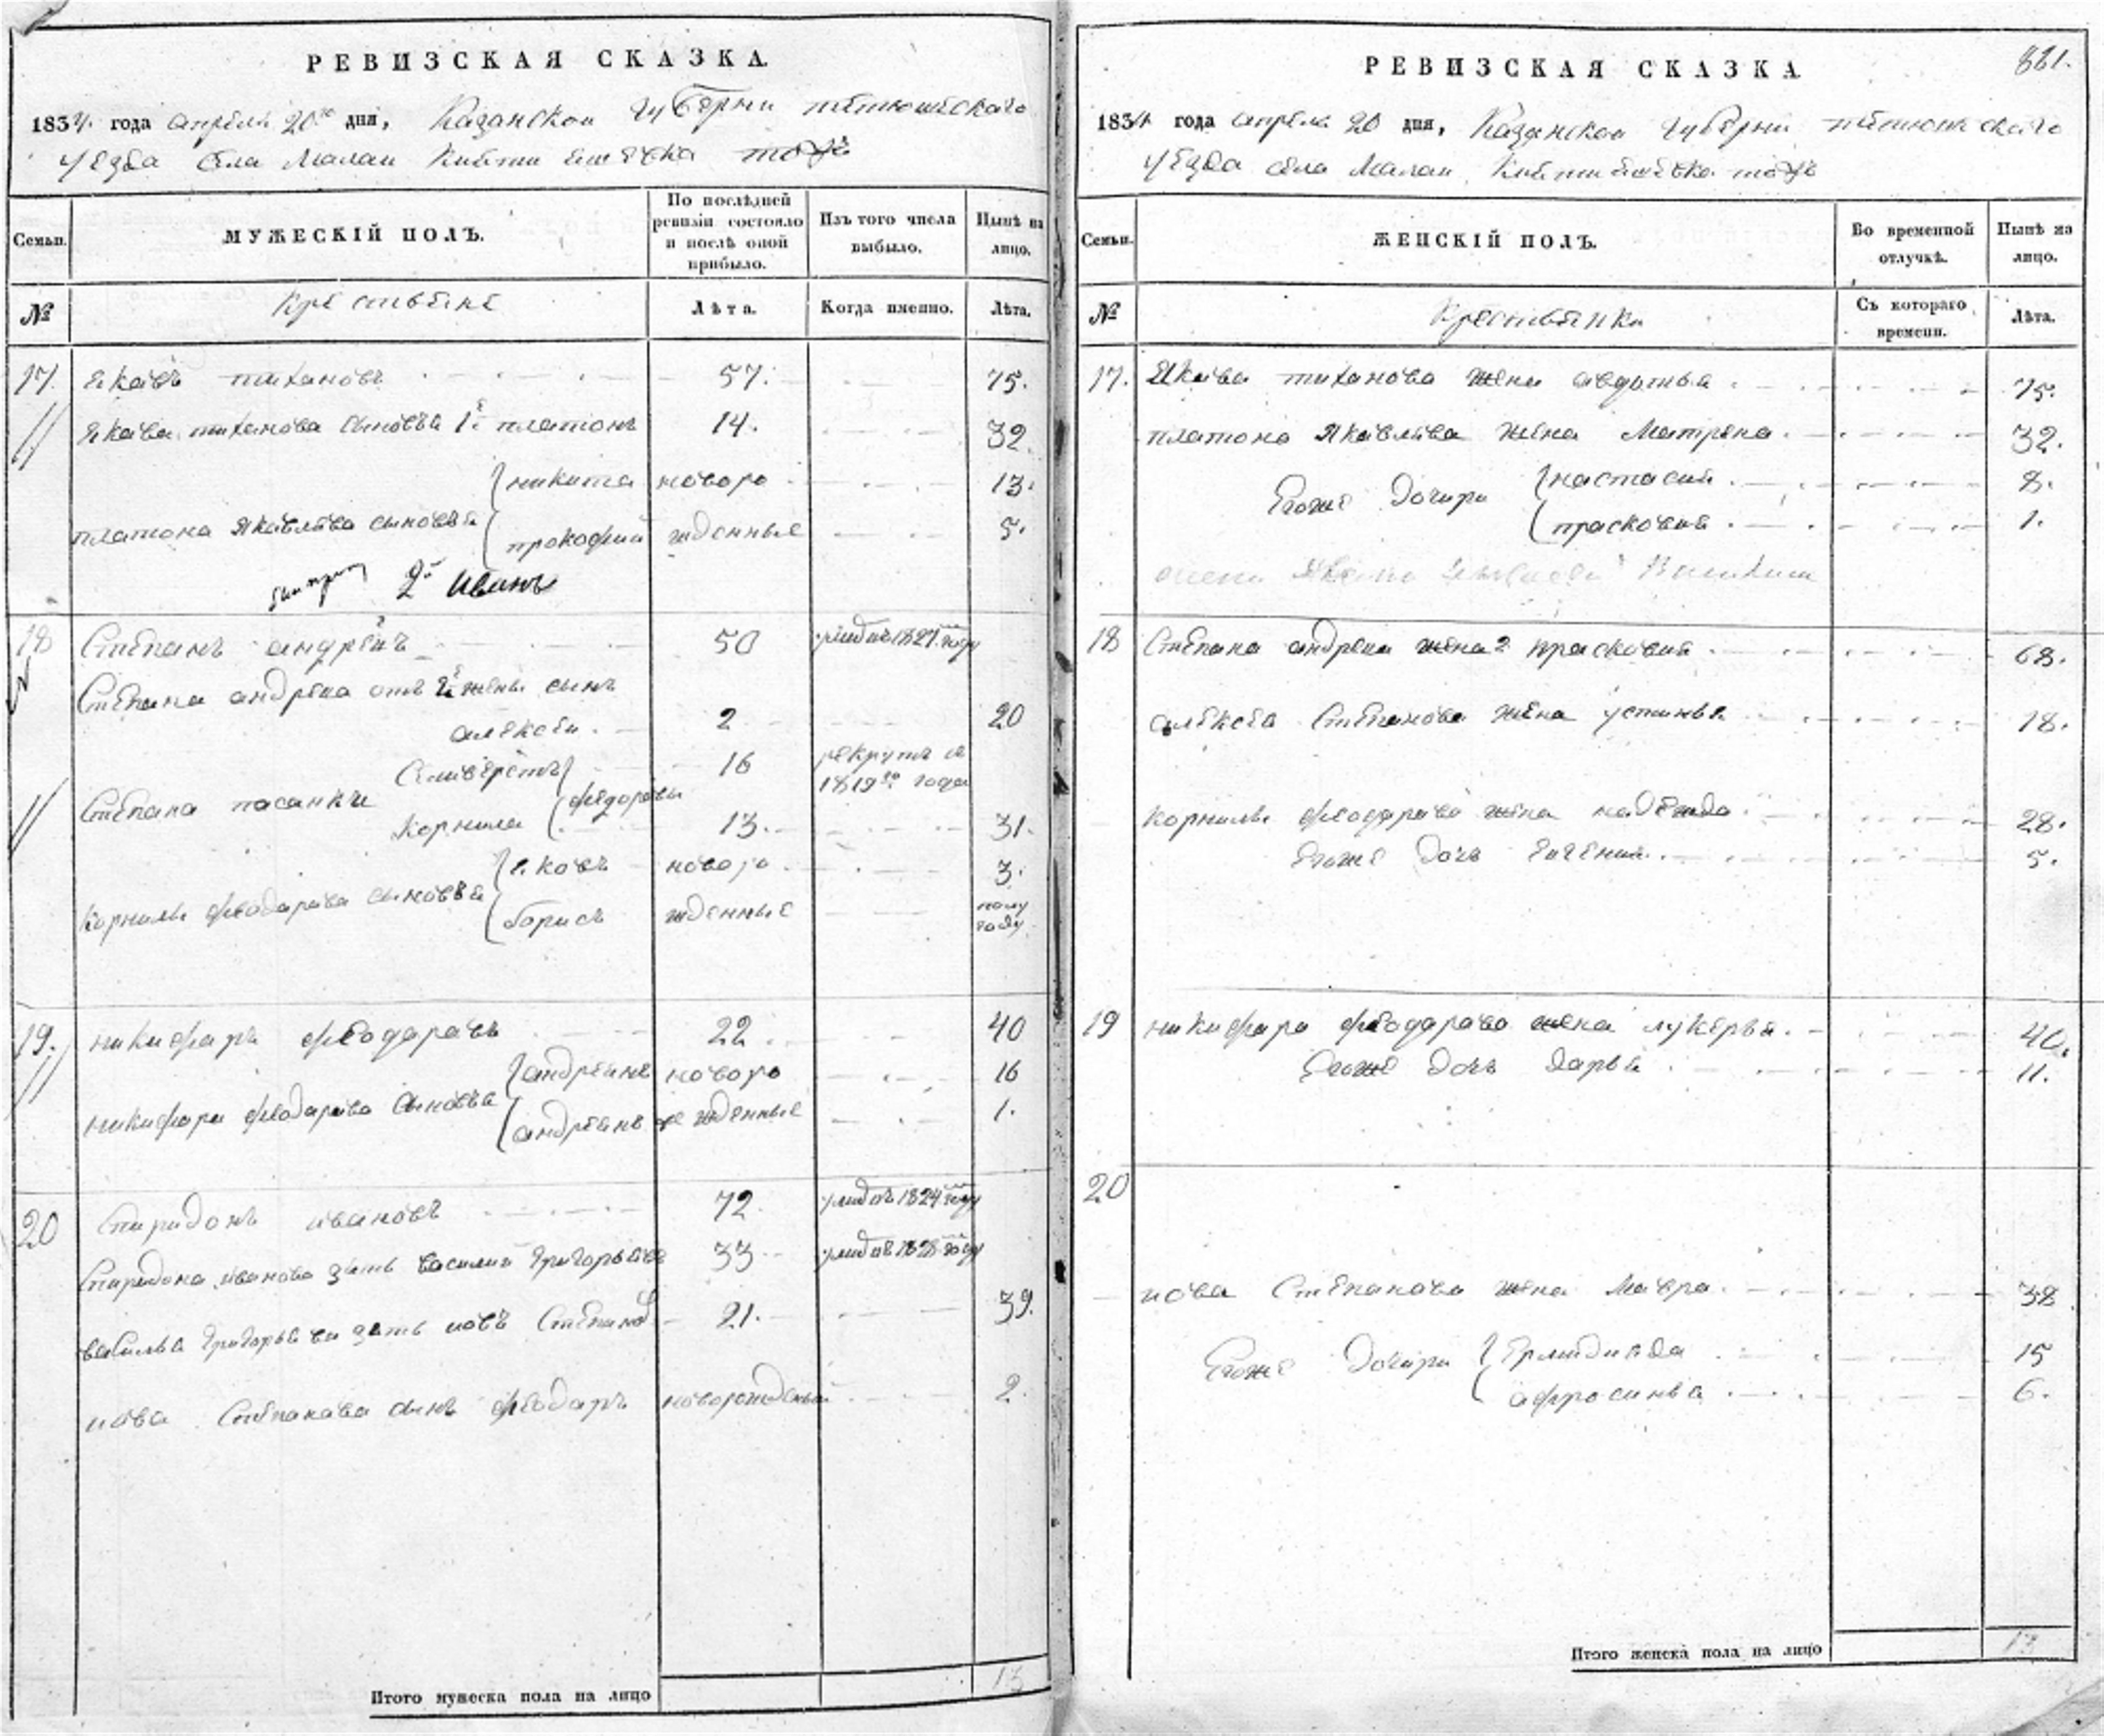 РЕВИЗСКАЯ СКАЗКА.
1834. года апреля 20го дня, Казанской губерни тетюшскаго
уезда села Малаи
Семьи.
МУЖЕСКІЙ ПОЛЪ.
По послѣдней ревизіи состояло и послѣ оной прибыло.
Изъ того числа выбыло.
Нынѣ на лицо.
№
крестьяне
Лѣта.
Когда именно.
Лѣта.
17. Якавъ тихановъ 57. 75.
Якава тиханова сыновья 1й платонъ 14. 32.
платона Якавлева сыновья никита новоро 13.
прокофий жденные 5.
2й Иванъ
18 Степанъ андреевъ 50 1827 году
Степана андреева отъ 2й жены сынъ
алексеи. 2 20
Степана пасанки Селиверстъ федоровы 16 рекрутъ 1819го года
Корнила 13. 31.
Корнилы феодарава сыновья Яковъ новоро 3.
борисъ жденные полу году
19. никифаръ феодаровъ 22 40
никифара феодарава сыновья андреянъ новоро 16
андреянъ же жденные 1.
20 Спиридонъ ивановъ 72 1824 году
Спиридона иванова зять василий григорьевъ 33 1828 году
василья григорьева зять иовъ Степанов 21. 39.
иова Степанава сынъ феодаръ новорожденый 2.
Итого мужеска пола на лицо 13
РЕВИЗСКАЯ СКАЗКА
861.
1834 года апреля 20 дня, Казанской губерни тетюшскаго
уезда села Малаи
Семьи.
ЖЕНСКІЙ ПОЛЪ.
Во временной отлучкѣ.
Нынѣ на лицо.
№
Крестьянки
Съ котораго времени.
Лѣта.
17. Якава тиханова жена авдотья 75.
платона Якавлева жена Матрена. 32.
Егоже дочери настасия 8.
прасковия 1.
18 Степана андреева жена прасковия 68.
алексея Степанова жена устинья 18.
корнилы феодарава жена надежда 28.
Егоже дочь Евгения 5.
19 никифара феодарава жена лукерья. 40.
Егоже дочь дарья 11.
20
иова Степанова жена Мавра. 38
Егоже дочери 15
афросинья 6.
Итого женска пола на лицо 13